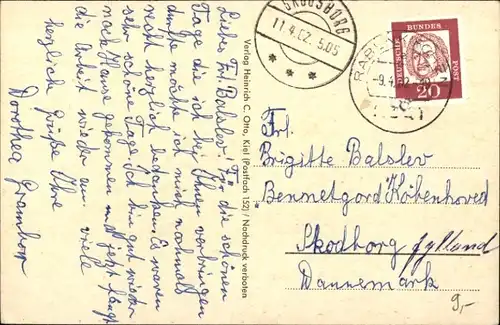 Liebes Frl. Balslev! Für die schönen
Tage die ich bei Ihnen verbringen
durfte möchte ich mich nochmals
recht herzlich bedanken. Es waren
sehr schöne Tage. Ich bin gut wieder
nach Hause gekommen und jetzt fängt
die Arbeit wieder an. viele
herzliche Grüße Ihre
Dorothea
Verlag Heinrich C. Otto, Kiel (Postfach 152) / Nachdruck verboten
11.4.62. 5.05
DEUTSCHE BUNDES POST
20
Frl.
Brigitte Balslev
Bennetgord Köbenhoved
Skodborg Jylland
Dannemark
9,-